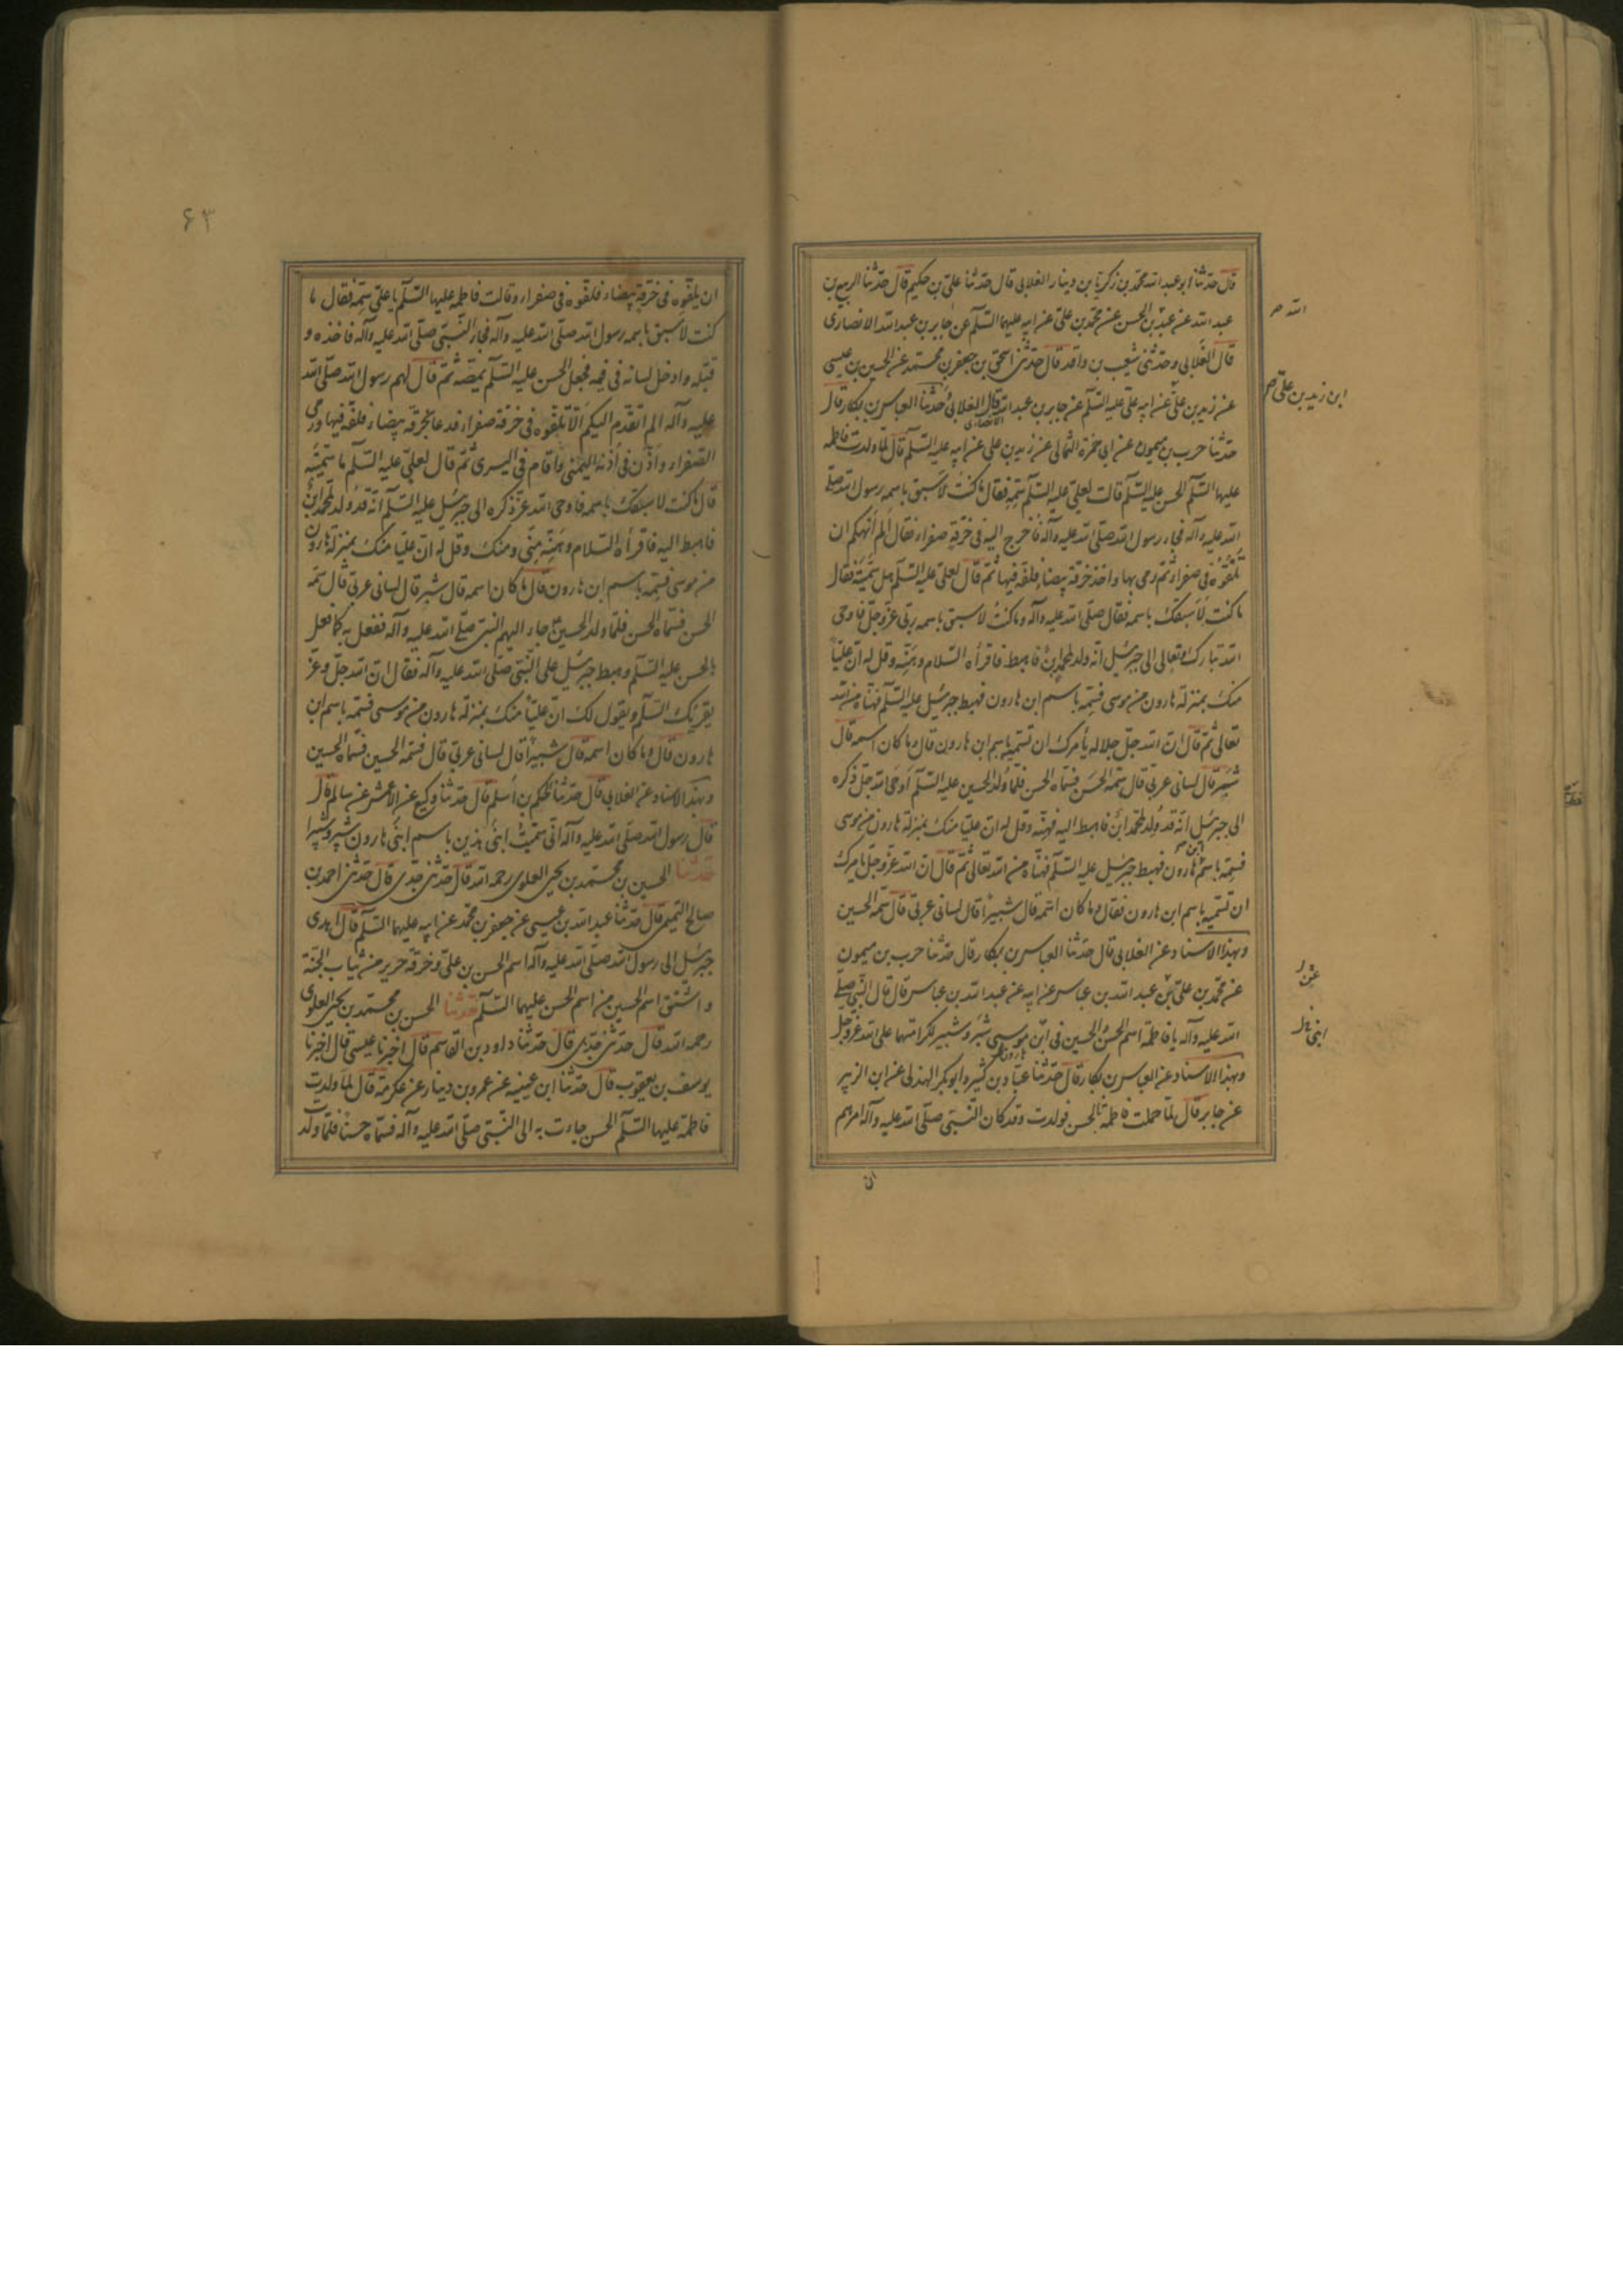 قال حدثنا ابو عبد الله محمد بن زكريا بن دينار الغلابى قال حدثنا على بن حكيم قال حدثنا الربيع بن
عبد الله عن عبد بن الحسن عن محمد بن على عن ابيه عليهما السلم عن جابر بن عبد الله الانصارى
الله صح
قال الغلابى وحدثنى شعيب بن واقد قال حدثنى اسحق بن جعفر بن محمد عن الحسين بن عيسى
عن زيد بن على عن ابيه على عليه السلم عن جابر بن عبد الله الانصارى قال الغلابى وحدثنا العباس بن بكار قال
ابن زيد بن على صح
حدثنا حرب بن ميمون عن ابى حمزة الثمالى عن زيد بن على عن ابيه عليه السلم قال لما ولدت فاطمه
عليها السلم الحسن عليه السلم قالت لعلى عليه السلم سمه فقال ما كنت لاسبق باسمه رسول الله صلى
الله عليه وآله فجاء رسول الله صلى الله عليه وآله فاخرج اليه فى خرقة صفراء فقال ألم أنهكم ان
تلفوه فى صفراء ثم رمى بها واخذ خرقة بيضاء فلفه فيها ثم قال لعلى عليه السلم هل سميته فقال
ما كنت لاسبقك باسمه فقال صلى الله عليه وآله وما كنت لاسبق باسمه ربى عز وجل فاوحى
الله تبارك وتعالى الى جبرئيل انه ولد لمحمد ابن فاهبط فاقرأه السلام وهنه وقل له ان عليا
منك بمنزلة هارون من موسى فسمه باسم ابن هارون فهبط جبرئيل عليه السلم فهناه من الله
تعالى ثم قال ان الله جل جلاله يأمرك ان تسميه باسم ابن هارون قال وما كان اسمه قال
شبر قال لسانى عربى قال سمه الحسن فسماه الحسن فلما ولد الحسين عليه السلم أوحى الله جل ذكره
الى جبرئيل انه قد ولد لمحمد ابن فاهبط اليه فهنه وقل له ان عليا منك بمنزلة هارون من موسى
فسمه باسم ابن هارون فهبط جبرئيل عليه السلم فهناه من الله تعالى ثم قال ان الله عز وجل يامرك
ان تسميه باسم ابن هارون فقال وما كان اسمه قال شبيرا قال لسانى عربى قال سمه الحسين
وبهذا الاسناد عن الغلابى قال حدثنا العباس بن بكار قال حدثنا حرب بن ميمون
عن محمد بن على بن عبد الله بن عباس عن ابيه عن عبد الله بن عباس قال قال النبى صلى
الله عليه وآله يا فاطمة اسم الحسن والحسين فى ابن موسى شبر وشبير لكرامتهما على الله عز وجل
ابنى
هارون
وبهذا الاسناد عن العباس بن بكار قال حدثنا عباد بن كثير وابو بكر الهذلى عن ابن الزبير
عن جابر قال لما حملت فاطمة بالحسن فولدت وقد كان النبى صلى الله عليه وآله امرهم
ان
۶۳
ان يلفوه فى خرقة بيضاء فلفوه فى صفراء وقالت فاطمه عليها السلم يا على سمه فقال ما
كنت لاسبق باسمه رسول الله صلى الله عليه وآله فجاء النبى صلى الله عليه وآله فاخذه و
قبله وادخل لسانه فى فمه فجعل الحسن عليه السلم يمصه ثم قال لهم رسول الله صلى الله
عليه وآله الم اتقدم اليكم الا تلفوه فى خرقة صفراء فدعا بخرقة بيضاء فلفه فيها ورمى
الصفراء واذن فى اذنه اليمنى واقام فى اليسرى ثم قال لعلى عليه السلم ما سميته
قال ما كنت لاسبقك باسمه فاوحى الله عز ذكره الى جبرئيل عليه السلم انه قد ولد لمحمد ابن
فاهبط اليه فاقرأه السلام وهنه منى ومنك وقل له ان عليا منك بمنزلة هارون
من موسى فسمه باسم ابن هارون قال ما كان اسمه قال شبر قال لسانى عربى قال سمه
الحسن فسماه الحسن فلما ولد الحسين جاء اليهم النبى صلى الله عليه وآله ففعل به كما فعل
بالحسن عليه السلم وهبط جبرئيل على النبى صلى الله عليه وآله فقال ان الله جل وعز
يقرئك السلم ويقول لك ان عليا منك بمنزلة هارون من موسى فسمه باسم ابن
هارون قال وما كان اسمه قال شبيرا قال لسانى عربى قال فسمه الحسين فسماه الحسين
وبهذا الاسناد عن الغلابى قال حدثنا الحكم بن اسلم قال حدثنا وكيع عن الاعمش عن سالم قال
قال رسول الله صلى الله عليه وآله انى سميت ابنى هذين باسم ابنى هارون شبر وشبيرا
حدثنا الحسين بن محمد بن يحيى العلوى رحمه الله قال حدثنى جدى قال حدثنى احمد بن
صالح التميمى قال حدثنا عبد الله بن عيسى عن جعفر بن محمد عن ابيه عليهما السلم قال اهدى
جبرئيل الى رسول الله صلى الله عليه وآله اسم الحسن بن على وخرقة حرير من ثياب الجنة
واشتق اسم الحسين من اسم الحسن عليهما السلم حدثنا الحسن بن محمد بن يحيى العلوى
رحمه الله قال حدثنى جدى قال حدثنا داود بن القاسم قال اخبرنا عيسى قال اخبرنا
يوسف بن يعقوب قال حدثنا ابن عيينه عن عمرو بن دينار عن عكرمة قال لما ولدت
فاطمة عليها السلم الحسن جاءت به الى النبى صلى الله عليه وآله فسماه حسنا فلما ولدت